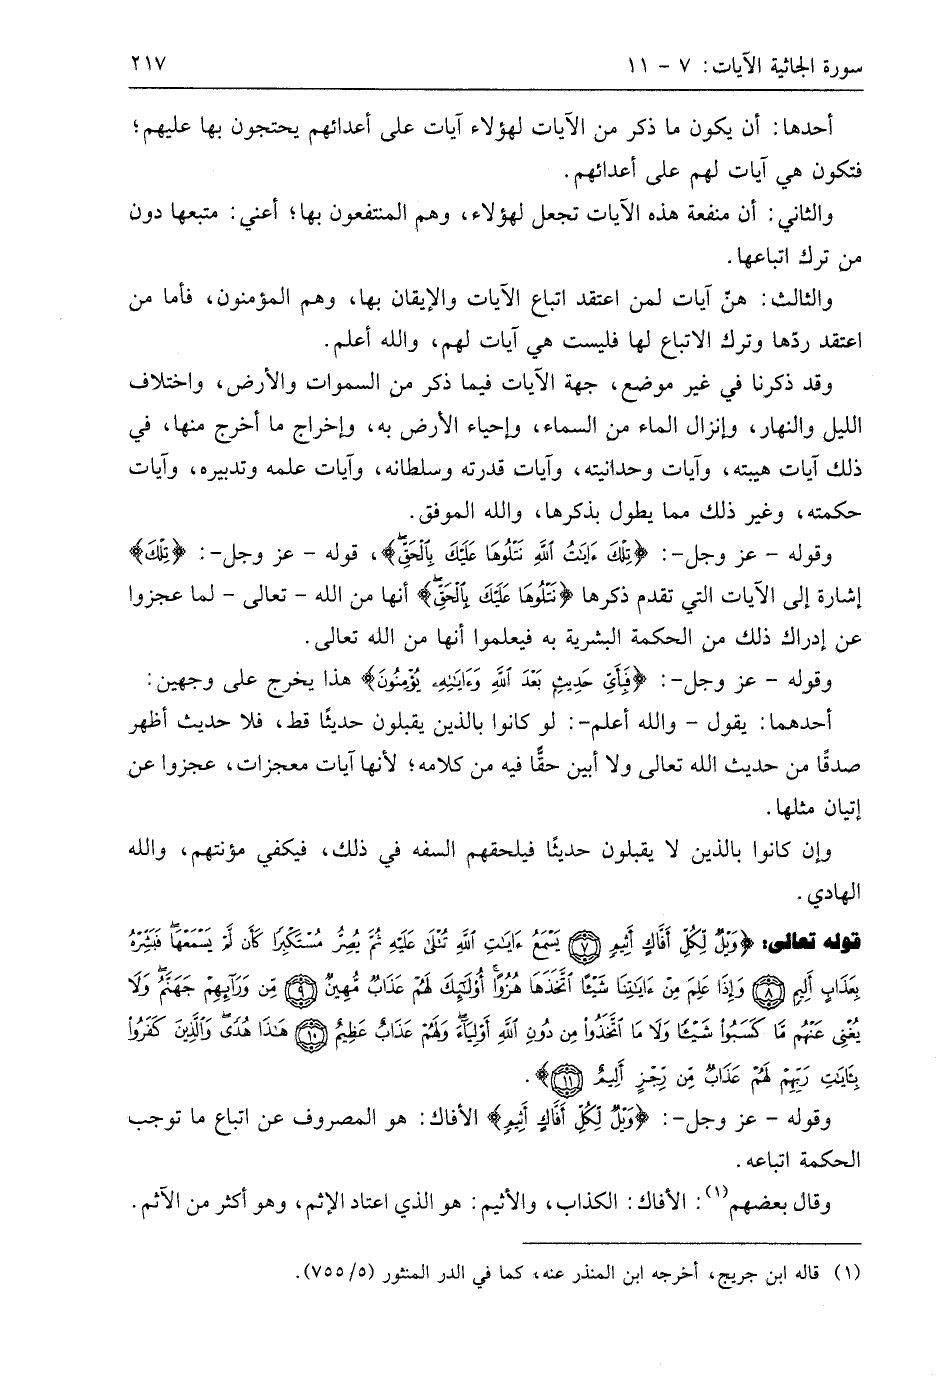 سورة الجاثية الآيات: ٧ - ١١ ٢١٧
أحدها: أن يكون ما ذكر من الآيات لهؤلاء آيات على أعدائهم يحتجون بها عليهم؛
فتكون هي آيات لهم على أعدائهم.
والثاني: أن منفعة هذه الآيات تجعل لهؤلاء، وهم المنتفعون بها؛ أعني: متبعها دون
من ترك اتباعها.
والثالث: هنّ آيات لمن اعتقد اتباع الآيات والإيقان بها، وهم المؤمنون، فأما من
اعتقد ردّها وترك الاتباع لها فليست هي آيات لهم، والله أعلم.
وقد ذكرنا في غير موضع، جهة الآيات فيما ذكر من السموات والأرض، واختلاف
الليل والنهار، وإنزال الماء من السماء، وإحياء الأرض به، وإخراج ما أخرج منها، في
ذلك آيات هيبته، وآيات وحدانيته، وآيات قدرته وسلطانه، وآيات علمه وتدبيره، وآيات
حكمته، وغير ذلك مما يطول بذكرها، والله الموفق.
وقوله - عز وجل-: ﴿تِلْكَ ءَايَٰتُ ٱللَّهِ نَتْلُوهَا عَلَيْكَ بِٱلْحَقِّۖ﴾، قوله - عز وجل-: ﴿تِلْكَ﴾
إشارة إلى الآيات التي تقدم ذكرها ﴿نَتْلُوهَا عَلَيْكَ بِٱلْحَقِّۖ﴾ أنها من الله - تعالى - لما عجزوا
عن إدراك ذلك من الحكمة البشرية به فيعلموا أنها من الله تعالى.
وقوله - عز وجل-: ﴿فَبِأَيِّ حَدِيثٍۭ بَعْدَ ٱللَّهِ وَءَايَٰتِهِۦ يُؤْمِنُونَ﴾ هذا يخرج على وجهين:
أحدهما: يقول - والله أعلم-: لو كانوا بالذين يقبلون حديثًا قط، فلا حديث أظهر
صدقًا من حديث الله تعالى ولا أبين حقًّا فيه من كلامه؛ لأنها آيات معجزات، عجزوا عن
إتيان مثلها.
وإن كانوا بالذين لا يقبلون حديثًا فيلحقهم السفه في ذلك، فيكفي مؤنتهم، والله
الهادي.
قوله تعالى: ﴿وَيْلٌ لِّكُلِّ أَفَّاكٍ أَثِيمٍ ٧ يَسْمَعُ ءَايَٰتِ ٱللَّهِ تُتْلَىٰ عَلَيْهِ ثُمَّ يُصِرُّ مُسْتَكْبِرًا كَأَن لَّمْ يَسْمَعْهَاۖ فَبَشِّرْهُ
بِعَذَابٍ أَلِيمٍ ٨ وَإِذَا عَلِمَ مِنْ ءَايَٰتِنَا شَيْـًٔا ٱتَّخَذَهَا هُزُوًاۚ أُو۟لَٰٓئِكَ لَهُمْ عَذَابٌ مُّهِينٌ ٩ مِّن وَرَآئِهِمْ جَهَنَّمُۖ وَلَا
يُغْنِى عَنْهُم مَّا كَسَبُوا۟ شَيْـًٔا وَلَا مَا ٱتَّخَذُوا۟ مِن دُونِ ٱللَّهِ أَوْلِيَآءَۖ وَلَهُمْ عَذَابٌ عَظِيمٌ ١٠ هَٰذَا هُدًىۖ وَٱلَّذِينَ كَفَرُوا۟
بِـَٔايَٰتِ رَبِّهِمْ لَهُمْ عَذَابٌ مِّن رِّجْزٍ أَلِيمٌ ١١﴾.
وقوله - عز وجل-: ﴿وَيْلٌ لِّكُلِّ أَفَّاكٍ أَثِيمٍ﴾ الأفاك: هو المصروف عن اتباع ما توجب
الحكمة اتباعه.
وقال بعضهم(١): الأفاك: الكذاب، والأثيم: هو الذي اعتاد الإثم، وهو أكثر من الآثم.
(١) قاله ابن جريج، أخرجه ابن المنذر عنه، كما في الدر المنثور (٧٥٥/٥).